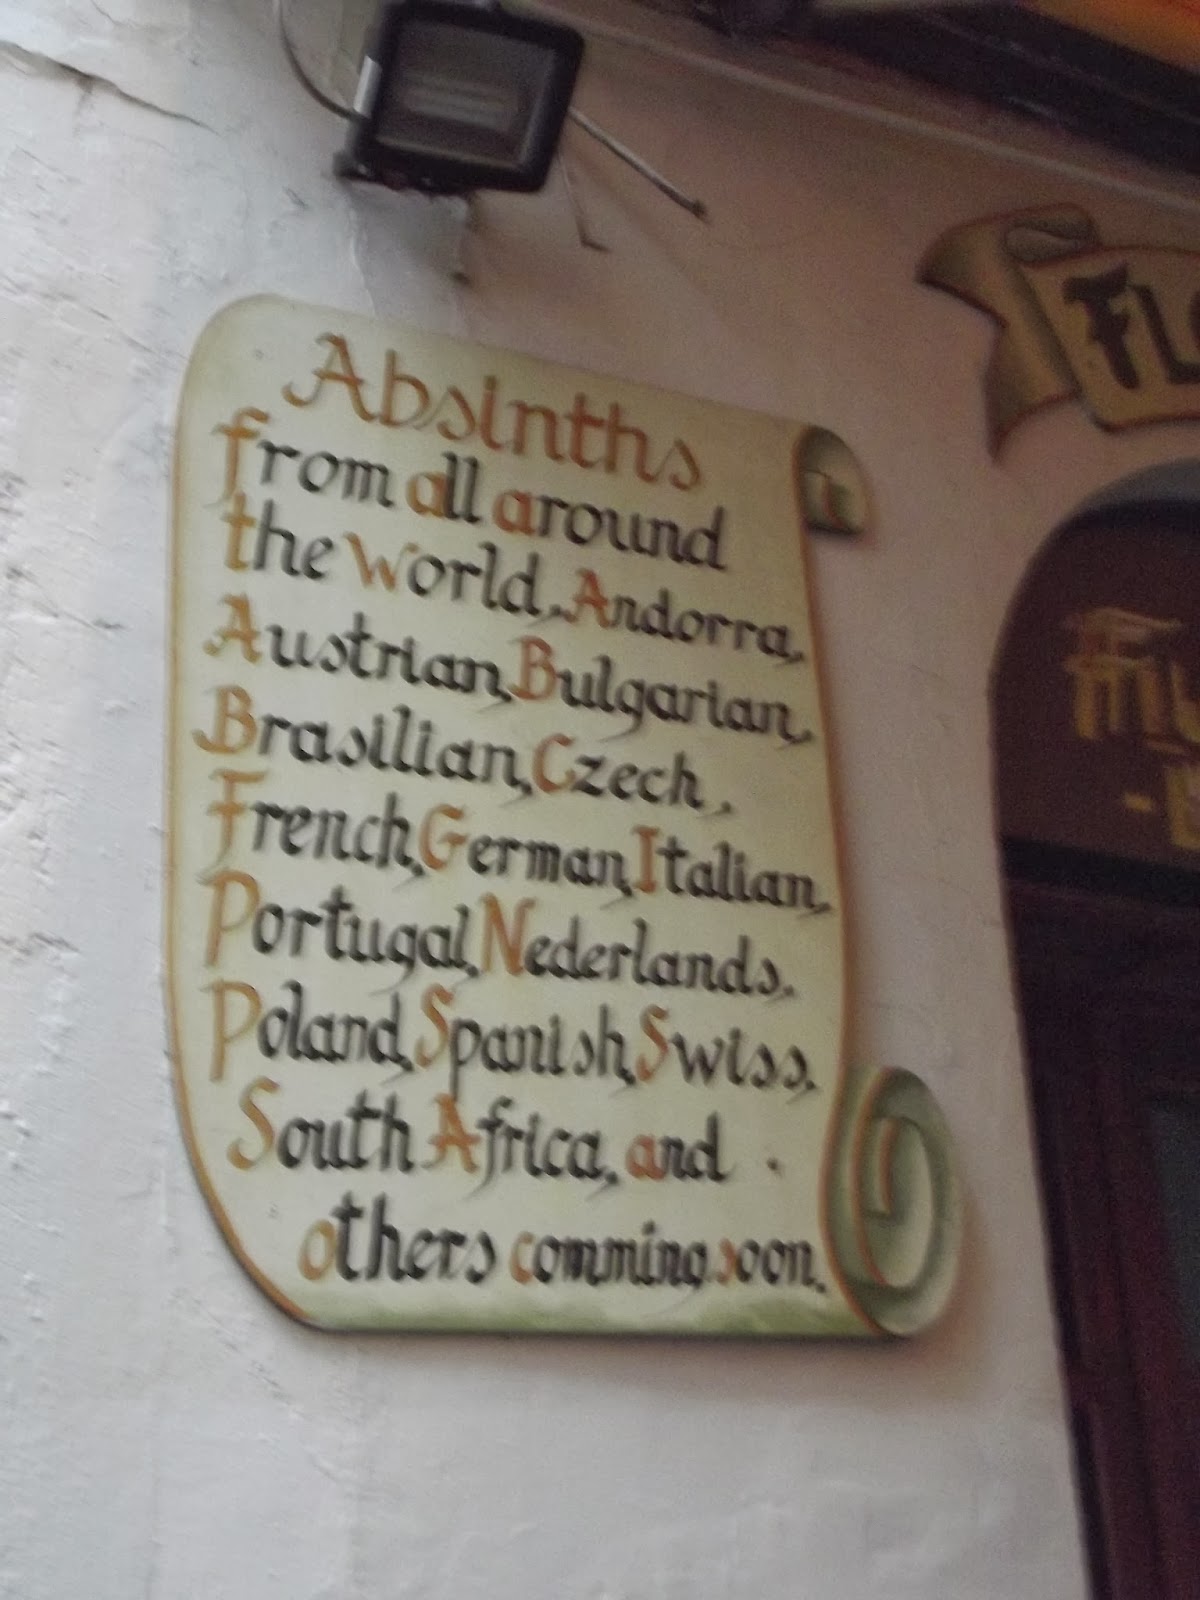 Absinths
from all around
the world, Andorra,
Austrian, Bulgarian,
Brasilian, Czech,
French, German, Italian,
Portugal, Nederlands,
Poland, Spanish, Swiss,
South Africa, and
others comming soon.